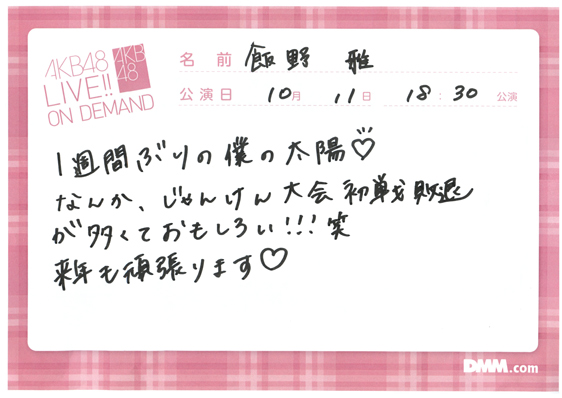 AKB48
LIVE!!
ON DEMAND
AKB
48
名前 飯野 雅
公演日 10月 11日 18:30 公演
1週間ぶりの僕の太陽♡
なんか、じゃんけん大会初戦敗退
が多くておもしろい!!!笑
来年も頑張ります♡
DMM.com